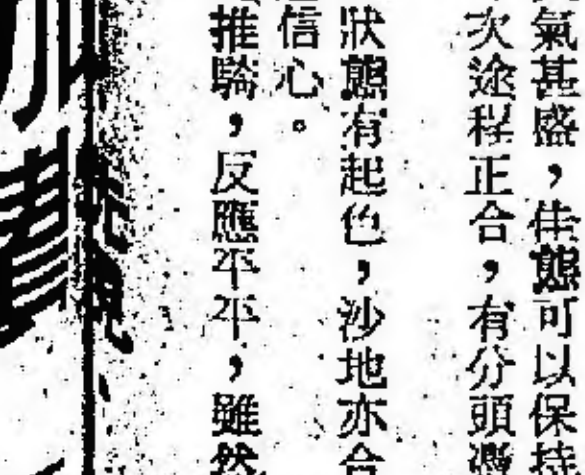 氣甚盛，佳態可以保持
次途程正合，有分頭
狀態有起色，沙地亦合
信心。
推騎，反應平平，雖然